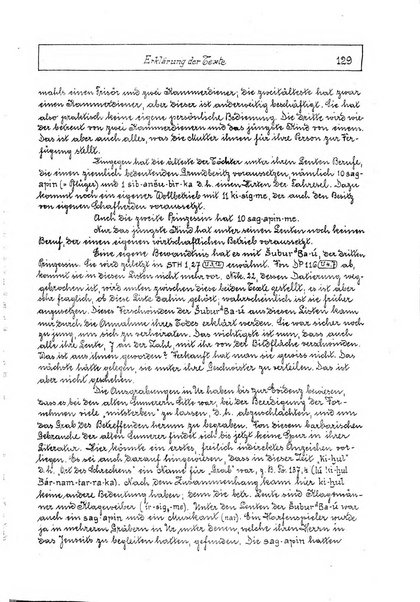 Erklärung der Texte 129
mahls einen Frisör und zwei Kammerdiener, die zweitälteste hat zwar
einen Kammerdiener, aber dieser ist anderweitig beschäftigt. Sie hat
also praktisch keine eigene persönliche Bedienung. Die dritte wird wie-
der betreut von zwei Kammerdienern und das jüngste Kind von einem.
Das ist aber auch alles, was die Mutter ihnen für ihre Person zur Ver-
fügung stellt.
Hingegen hat die älteste der Töchter unter ihren Leuten Berufe,
die einen ziemlich bedeutenden Grundbesitz voraussetzen, nämlich 10 sag-
apin (= Pflüger) und 1 sib-anšu-bir-ka d.h. einen Hirten der Fahresel. Dazu
kommt noch ein eigener Wollbetrieb mit 11 ki-sig-me, der auch den Besitz
von eigenen Schafherden voraussetzt.
Auch die zweite Prinzessin hat 10 sag-apin-me.
Nur das jüngste Kind hat unter seinen Leuten noch keinen
Beruf, der einen eigenen wirtschaftlichen Betrieb voraussetzt.
Eine eigene Bewandtnis hat es mit Šubur dBa-ú, der dritten
Prinzessin. Sie wird zuletzt in STH 1,27 erwähnt. Von DP 116 ab,
kommt sie in diesen Listen nicht mehr vor. Nik. 22, dessen Datierung weg-
gebrochen ist, wird unten zwischen diese beiden Texte gestellt, es ist aber
sehr fraglich, ob diese Liste dahin gehört, wahrscheinlich ist sie früher
anzusetzen. Dieses Verschwinden der Šubur dBa-ú aus diesen Listen kann
nur durch die Annahme ihres Todes erklärt werden. Sie war sicher noch
zu jung, um sich zu verheiraten. Das wichtigste ist nun, dass auch
alle ihre Leute, 7 an der Zahl, mit ihr von der Bildfläche verschwinden.
Was ist aus ihnen geworden? Verkauft hat man sie gewiss nicht. Das
nächste hätte gelegen, sie unter ihre Geschwister zu verteilen. Das ist
aber nicht geschehen.
Die Ausgrabungen in Ur haben bis zur Evidenz bewiesen,
dass es bei den alten Sumerern Sitte war, bei der Beerdigung der Vor-
nehmen viele „mitsterben" zu lassen, d.h. abzuschlachten, und um
das Grab des Betreffenden herum zu begraben. Von diesem barbarischen
Gebrauche der alten Sumerer findet sich bis jetzt keine Spur in ihrer
Literatur. Hier könnte ein erstes, freilich indirektes Anzeichen vor-
liegen. Es sei auch darauf hingewiesen, dass in dieser Zeit „ki-ḫul"
d.h. „Ort des Schreckens" ein Name für „Grab" war, z.B. Fö. 137,2 (lú ki-ḫul
Bár-nam-tar-ra-ka). Nach dem Zusammenhang kann hier ki-ḫul
keine andere Bedeutung haben, denn die betr. Leute sind Klagemän-
ner und Klageweiber (ír-sig, me). Unter den Leuten der Šubur dBa-ú war
auch ein sag-apin und ein Musikant (nar). Ein Harfenspieler wurde
ja in mehreren Gräbern in Ur unter denen, welche ihren Herrn in
das Jenseits zu begleiten hatten, gefunden. Die sag-apin hatten